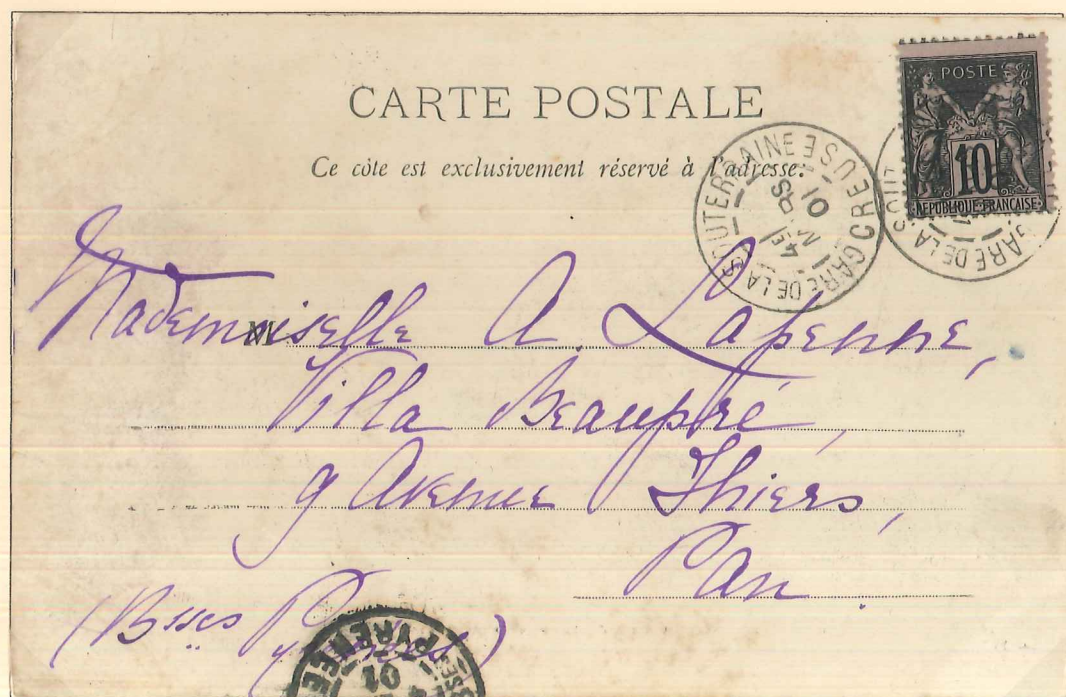 CARTE POSTALE
Ce côte est exclusivement réservé à l'adresse.
POSTE
10
REPUBLIQUE FRANÇAISE
GARE DE LA SOUTERRAINE CREUSE
01
GARE DE LA SOUT
Mademoiselle A. Lapenne,
Villa Beaupré,
9 Avenue Thiers,
Pau.
(Bsses Pyrénées)
PYRENEE
01